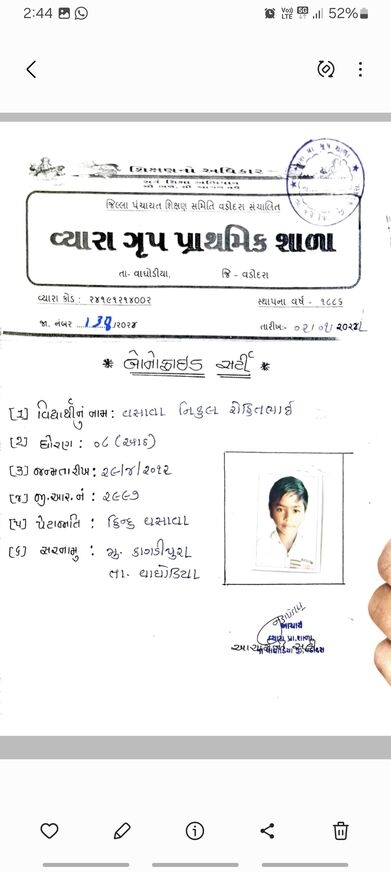 2:44
Vo)) LTE
5G
52%
શિક્ષણનો અધિકાર
સર્વ શિક્ષા અભિયાન
જિલ્લા પંચાયત શિક્ષણ સમિતિ વડોદરા સંચાલિત
વ્યારા ગૃપ પ્રાથમિક શાળા
તા- વાઘોડીયા, જી - વડોદરા
વ્યારા કોડ : ૨૪૧૯૧૨૧૪૦૦૨ સ્થાપના વર્ષ - ૧૮૮૬
જા. નંબર ....138/૨૦૨૪ તારીખ:-
* બોનોફાઇડ સર્ટી *
[૧] વિદ્યાર્થીનું નામ : વસાવા નિકુલ રોહિતભાઈ
[૨] ધોરણ : ૦૮ (આઠ)
[૩] જન્મ તારીખ : ૨૯/૪/૨૦૧૨
[૪] જી.આર.નં : ૨૯૯૭
[૫] પેટાજાતિ : હિન્દુ વસાવા
[૬] સરનામુ : મુ. કાગડીપુરા
તા. વાઘોડિયા
આચાર્ય
વ્યારા પ્રા.શાળા